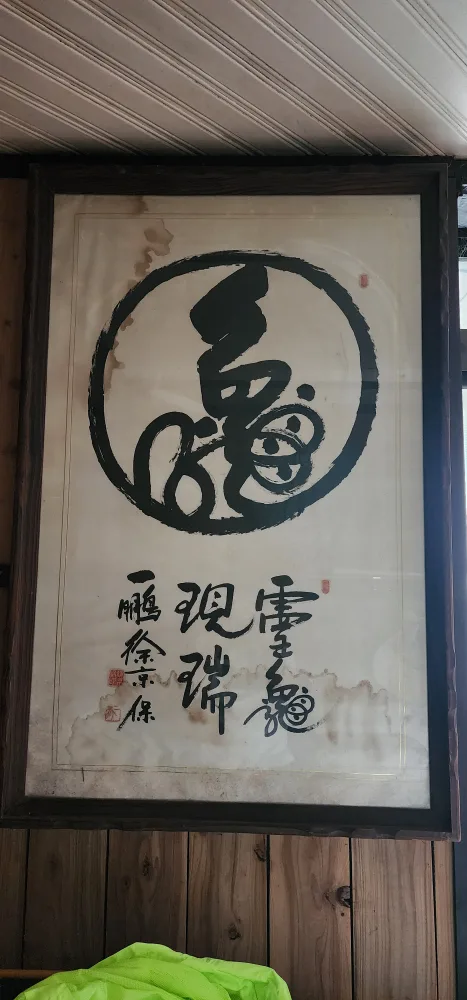 龜
靈龜
現瑞
一鵬徐京保